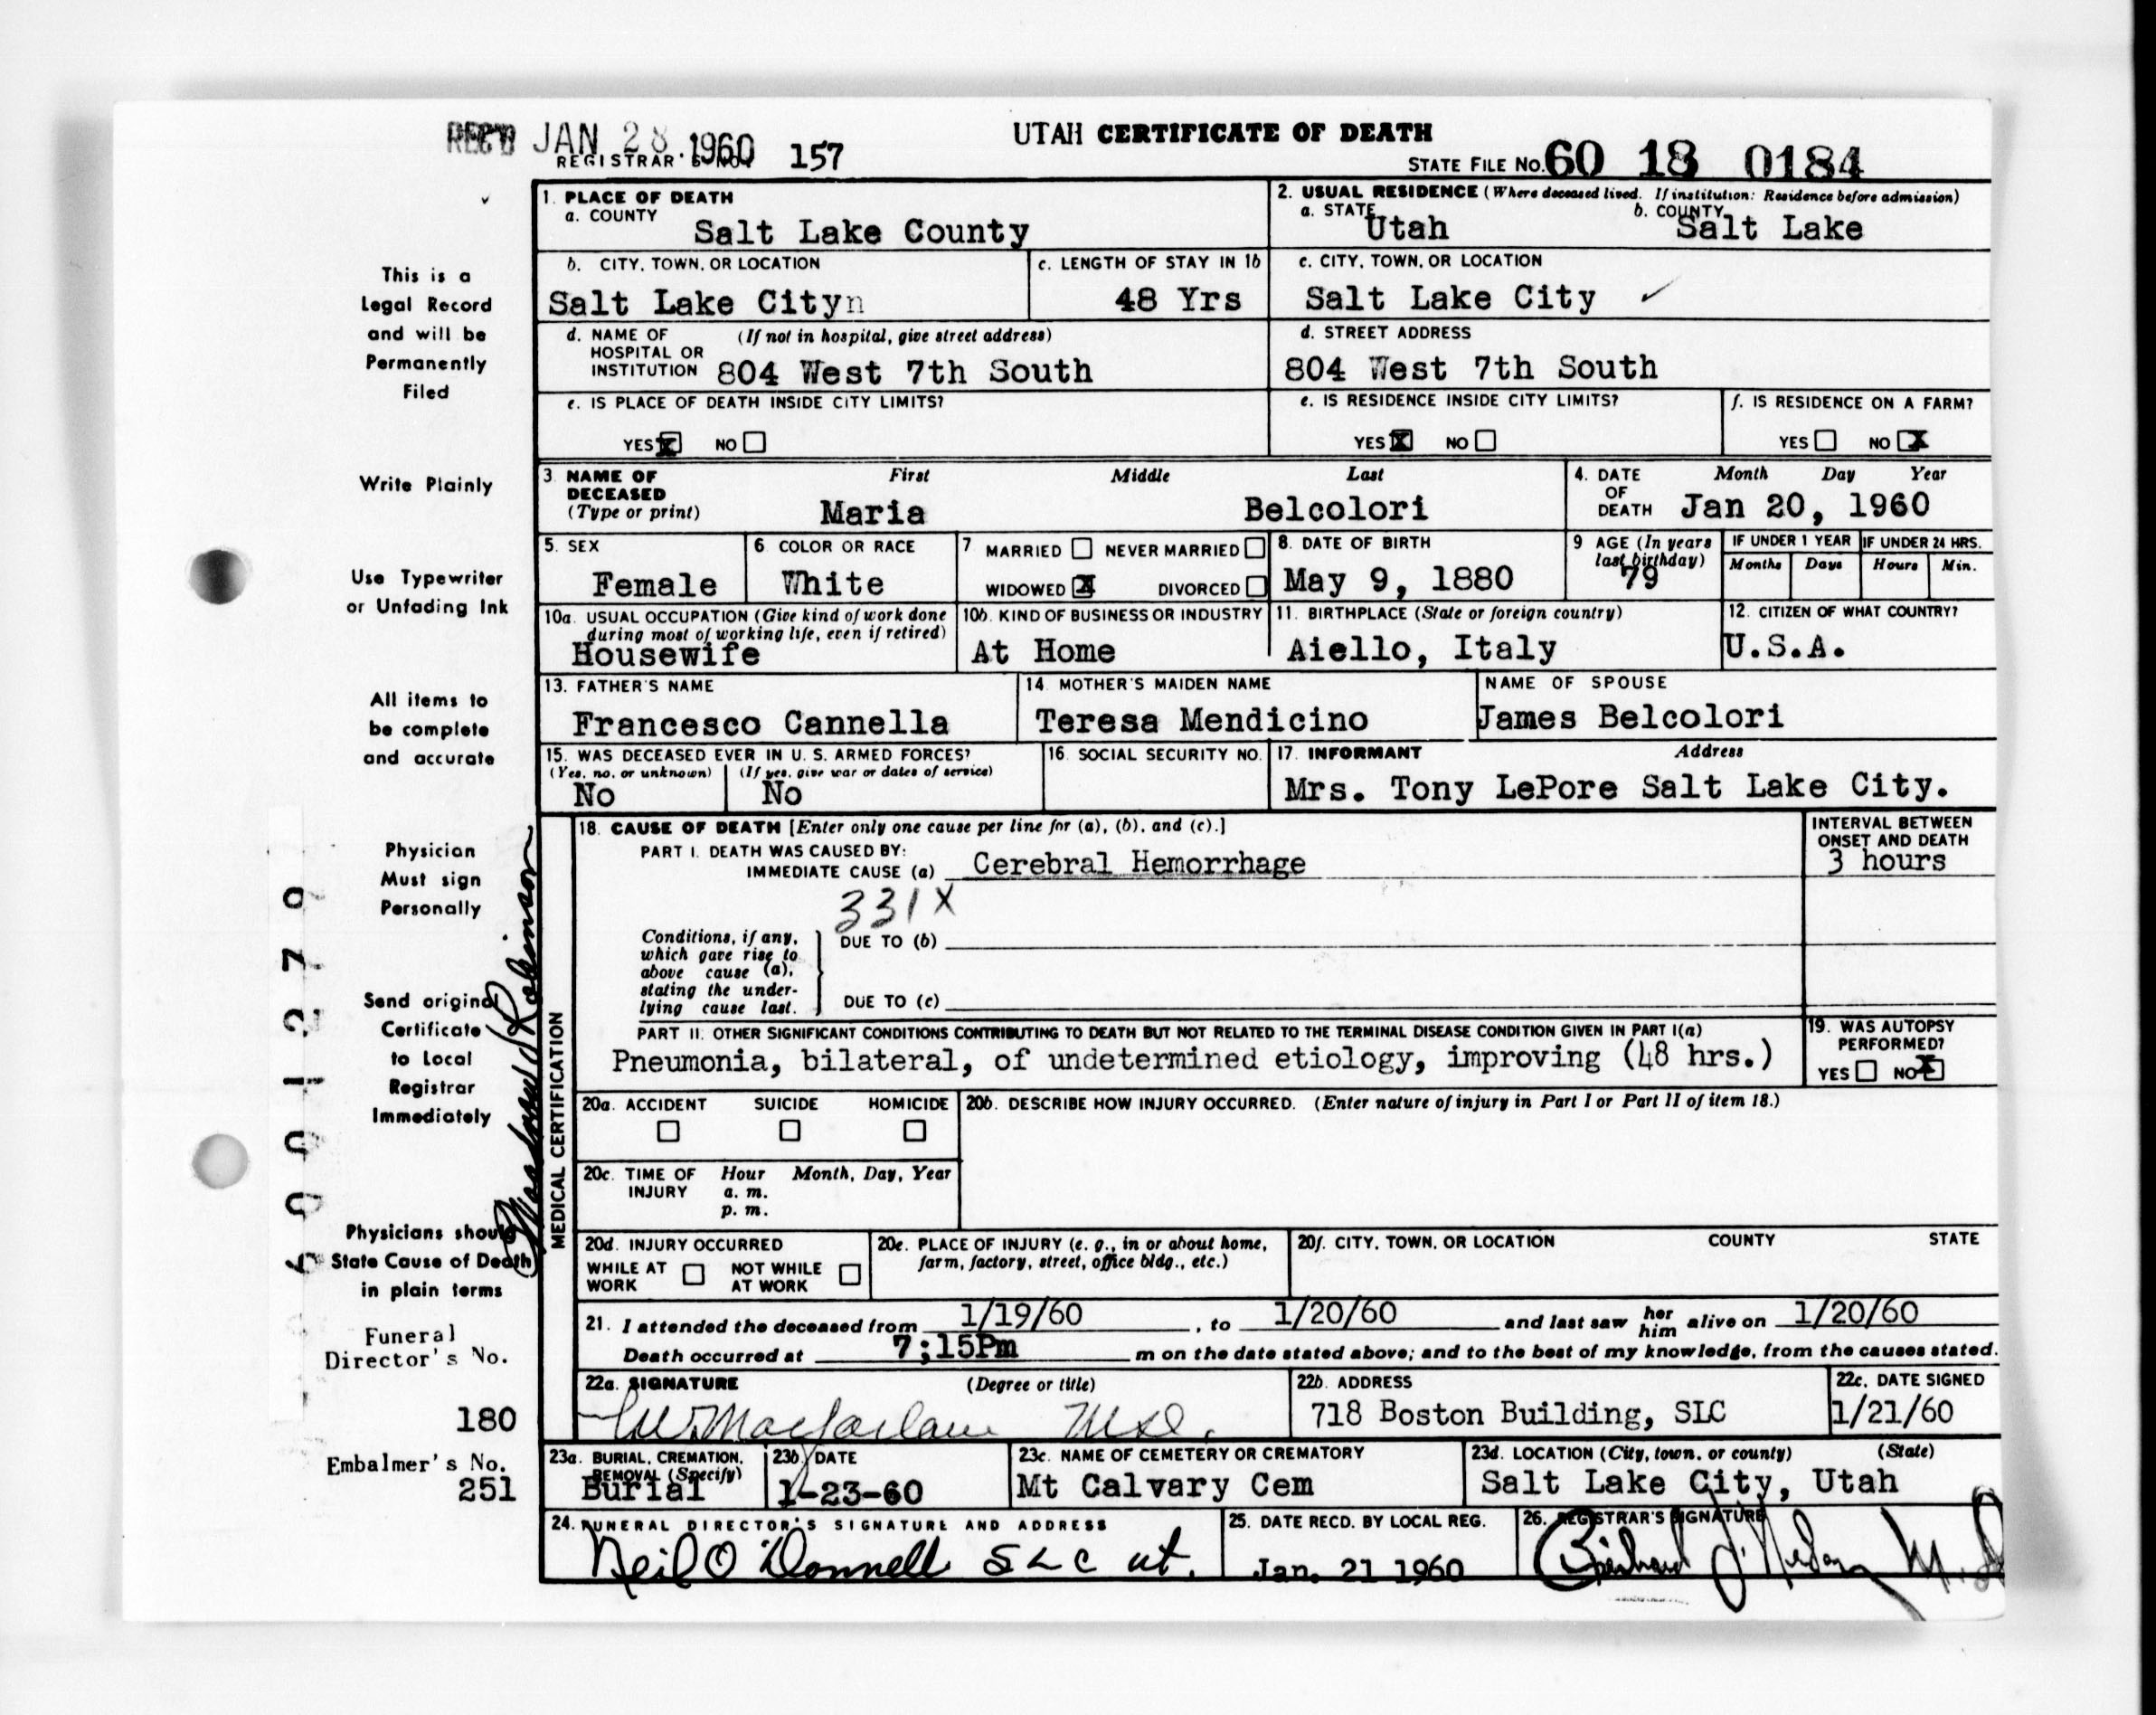 REC'D JAN 28 1960
UTAH CERTIFICATE OF DEATH
REGISTRAR'S NO. 157
STATE FILE NO. 60 18 0184
1. PLACE OF DEATH
a. COUNTY
Salt Lake County
2. USUAL RESIDENCE (Where deceased lived. If institution: Residence before admission)
a. STATE Utah
b. COUNTY Salt Lake
b. CITY, TOWN, OR LOCATION
Salt Lake Cityn
c. LENGTH OF STAY IN 1b
48 Yrs
c. CITY, TOWN, OR LOCATION
Salt Lake City ✓
d. NAME OF HOSPITAL OR INSTITUTION (If not in hospital, give street address)
804 West 7th South
d. STREET ADDRESS
804 West 7th South
e. IS PLACE OF DEATH INSIDE CITY LIMITS?
YES X NO
e. IS RESIDENCE INSIDE CITY LIMITS?
YES X NO
f. IS RESIDENCE ON A FARM?
YES NO X
3. NAME OF DECEASED (Type or print)
First Middle Last
Maria Belcolori
4. DATE OF DEATH Month Day Year
Jan 20, 1960
5. SEX
Female
6 COLOR OR RACE
White
7 MARRIED NEVER MARRIED
WIDOWED X DIVORCED
8. DATE OF BIRTH
May 9, 1880
9 AGE (In years last birthday)
79
IF UNDER 1 YEAR IF UNDER 24 HRS.
Months Days Hours Min.
10a. USUAL OCCUPATION (Give kind of work done during most of working life, even if retired)
Housewife
10b. KIND OF BUSINESS OR INDUSTRY
At Home
11. BIRTHPLACE (State or foreign country)
Aiello, Italy
12. CITIZEN OF WHAT COUNTRY?
U.S.A.
13. FATHER'S NAME
Francesco Cannella
14. MOTHER'S MAIDEN NAME
Teresa Mendicino
NAME OF SPOUSE
James Belcolori
15. WAS DECEASED EVER IN U. S. ARMED FORCES?
(Yes, no, or unknown) (If yes, give war or dates of service)
No No
16. SOCIAL SECURITY NO.
17. INFORMANT Address
Mrs. Tony LePore Salt Lake City.
MEDICAL CERTIFICATION
18. CAUSE OF DEATH [Enter only one cause per line for (a), (b), and (c).]
PART I. DEATH WAS CAUSED BY:
IMMEDIATE CAUSE (a) Cerebral Hemorrhage
331X
INTERVAL BETWEEN ONSET AND DEATH
3 hours
Conditions, if any, which gave rise to above cause (a), stating the underlying cause last.
DUE TO (b)
DUE TO (c)
PART II. OTHER SIGNIFICANT CONDITIONS CONTRIBUTING TO DEATH BUT NOT RELATED TO THE TERMINAL DISEASE CONDITION GIVEN IN PART I(a)
Pneumonia, bilateral, of undetermined etiology, improving (48 hrs.)
19. WAS AUTOPSY PERFORMED?
YES NO X
20a. ACCIDENT SUICIDE HOMICIDE
20b. DESCRIBE HOW INJURY OCCURRED. (Enter nature of injury in Part I or Part II of item 18.)
20c. TIME OF INJURY Hour Month, Day, Year
a. m.
p. m.
20d. INJURY OCCURRED
WHILE AT WORK NOT WHILE AT WORK
20e. PLACE OF INJURY (e. g., in or about home, farm, factory, street, office bldg., etc.)
20f. CITY, TOWN, OR LOCATION COUNTY STATE
21. I attended the deceased from 1/19/60, to 1/20/60 and last saw her him alive on 1/20/60
Death occurred at 7;15Pm m on the date stated above; and to the best of my knowledge, from the causes stated.
22a. SIGNATURE (Degree or title)
Macfarlane M.D.
22b. ADDRESS
718 Boston Building, SLC
22c. DATE SIGNED
1/21/60
23a. BURIAL, CREMATION, REMOVAL (Specify)
Burial
23b. DATE
1-23-60
23c. NAME OF CEMETERY OR CREMATORY
Mt Calvary Cem
23d. LOCATION (City, town, or county) (State)
Salt Lake City, Utah
24. FUNERAL DIRECTOR'S SIGNATURE AND ADDRESS
Neil O'Donnell SLC ut.
25. DATE RECD. BY LOCAL REG.
Jan. 21 1960
26. REGISTRAR'S SIGNATURE
This is a
Legal Record
and will be
Permanently
Filed
Write Plainly
Use Typewriter
or Unfading Ink
All items to
be complete
and accurate
Physician
Must sign
Personally
Send original
Certificate
to Local
Registrar
Immediately
Physicians should
State Cause of Death
in plain terms
Funeral
Director's No.
180
Embalmer's No.
251
Robinson